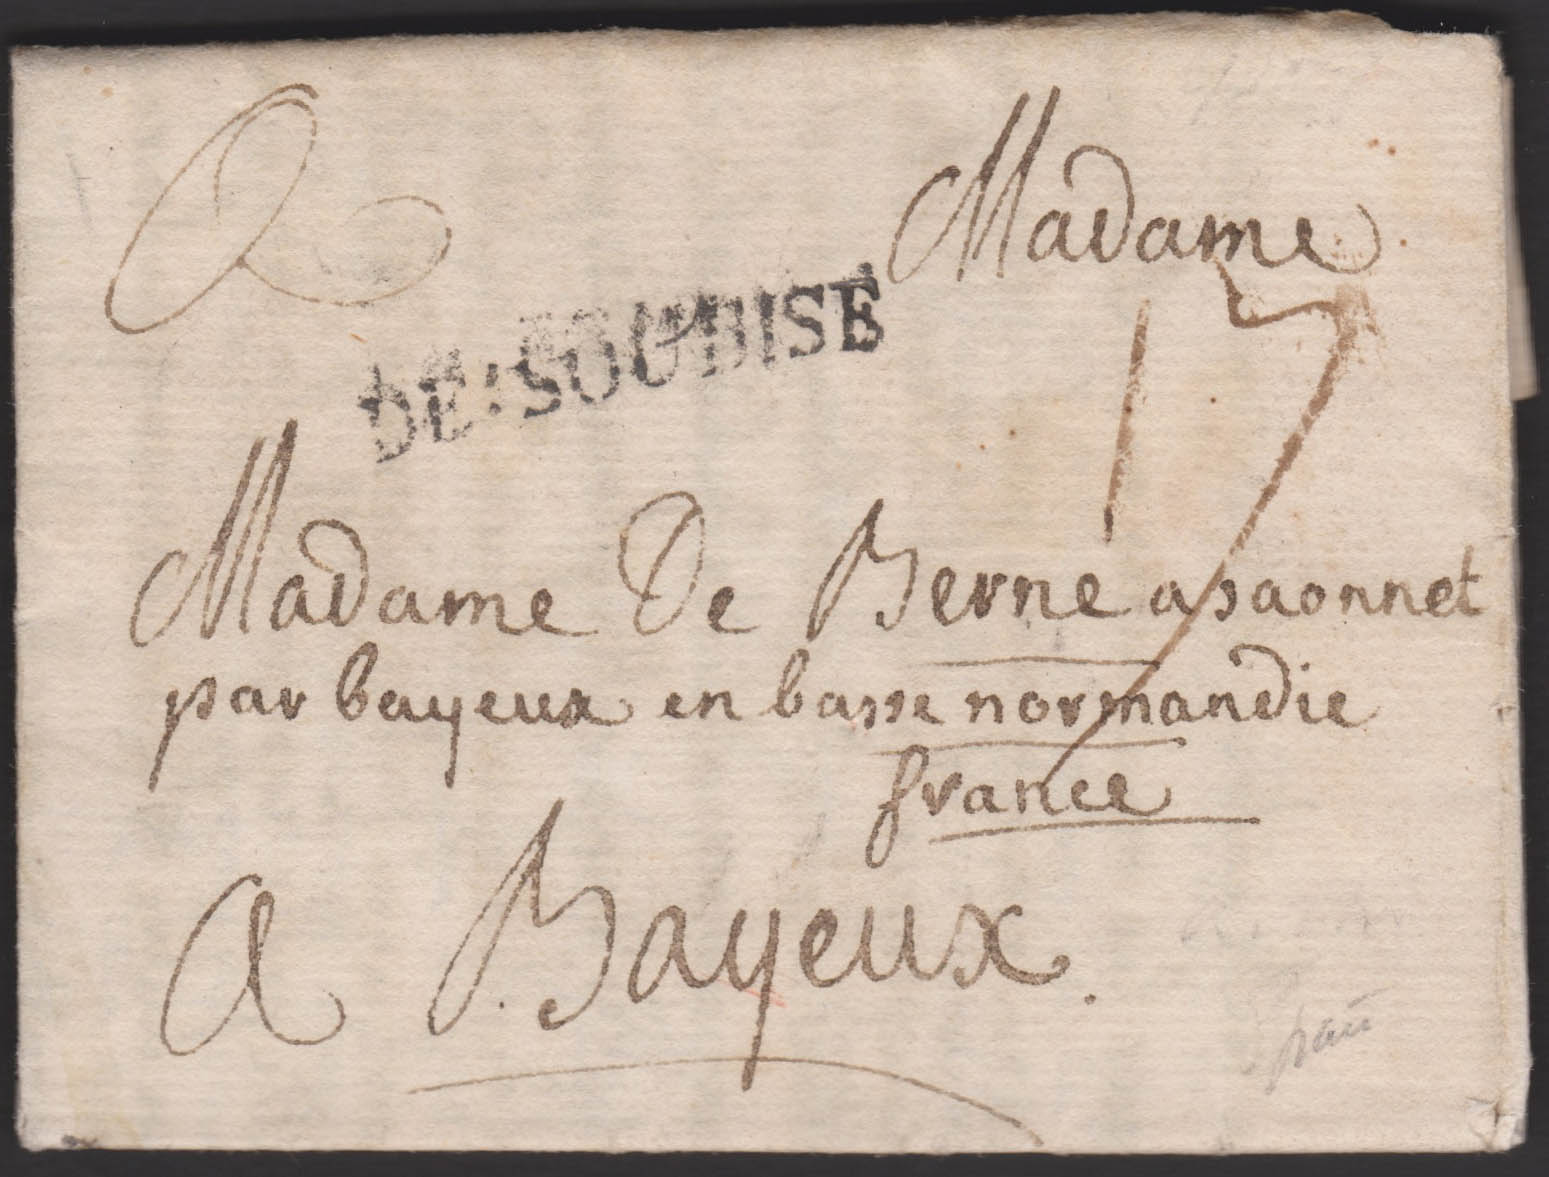 Madame
DE·SOUBISE
17
Madame De Berne a saonnet
par bayeux en basse normandie
france
A Bayeux.